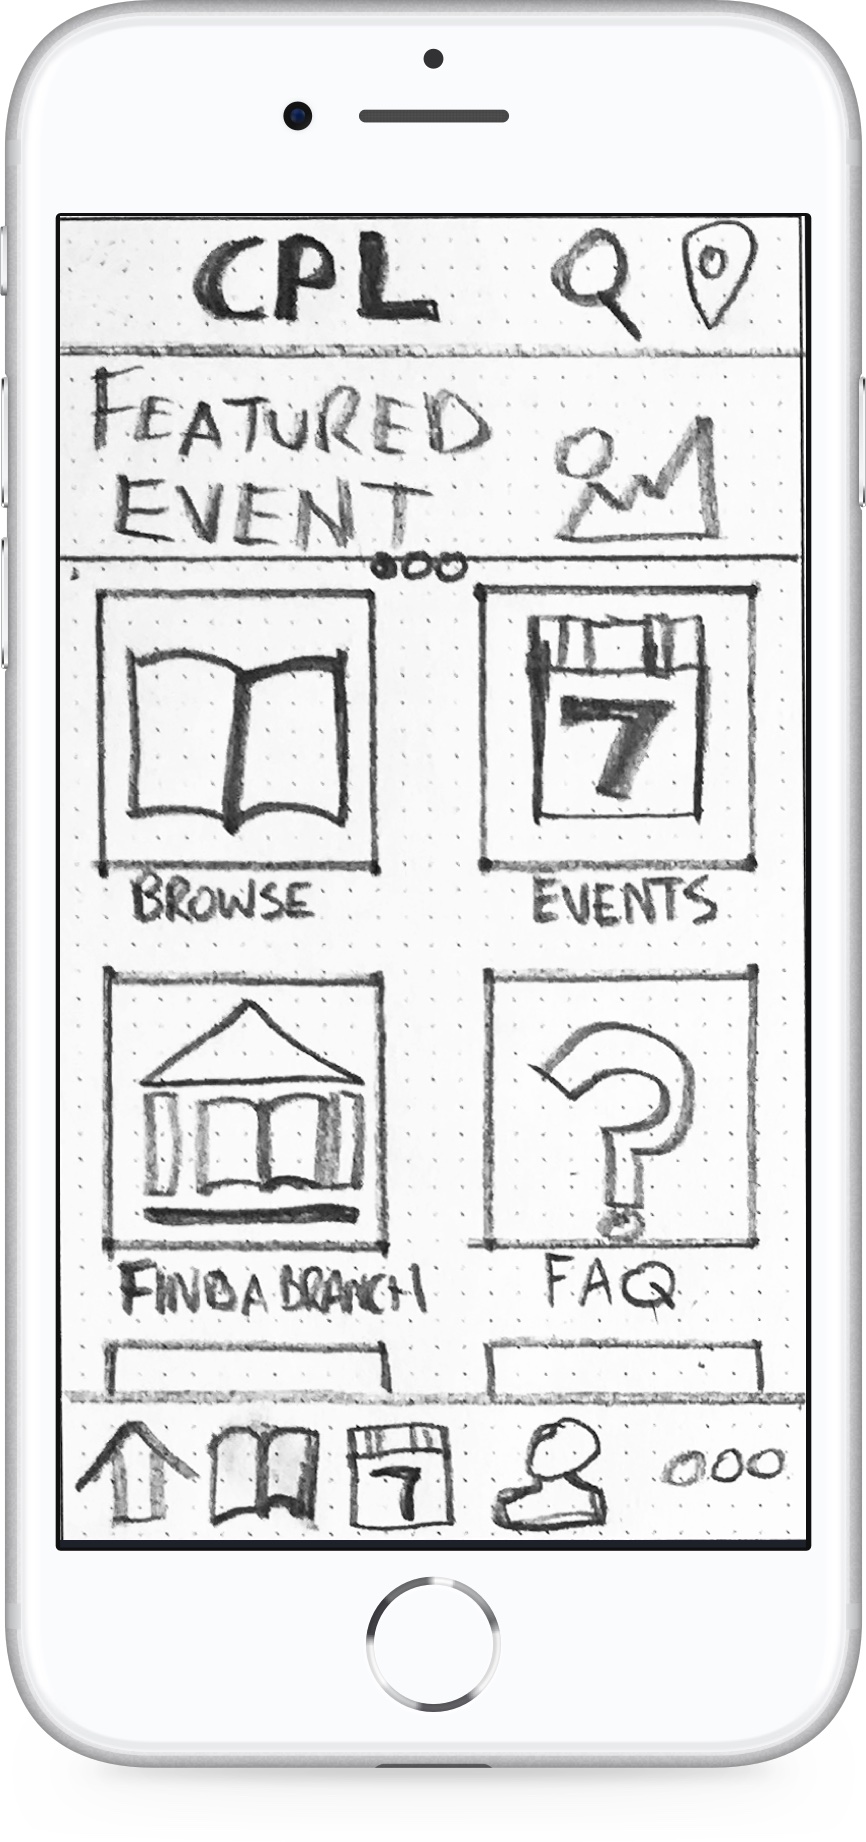 CPL
FEATURED
EVENT
7
BROWSE
EVENTS
FIND A BRANCH
FAQ
7